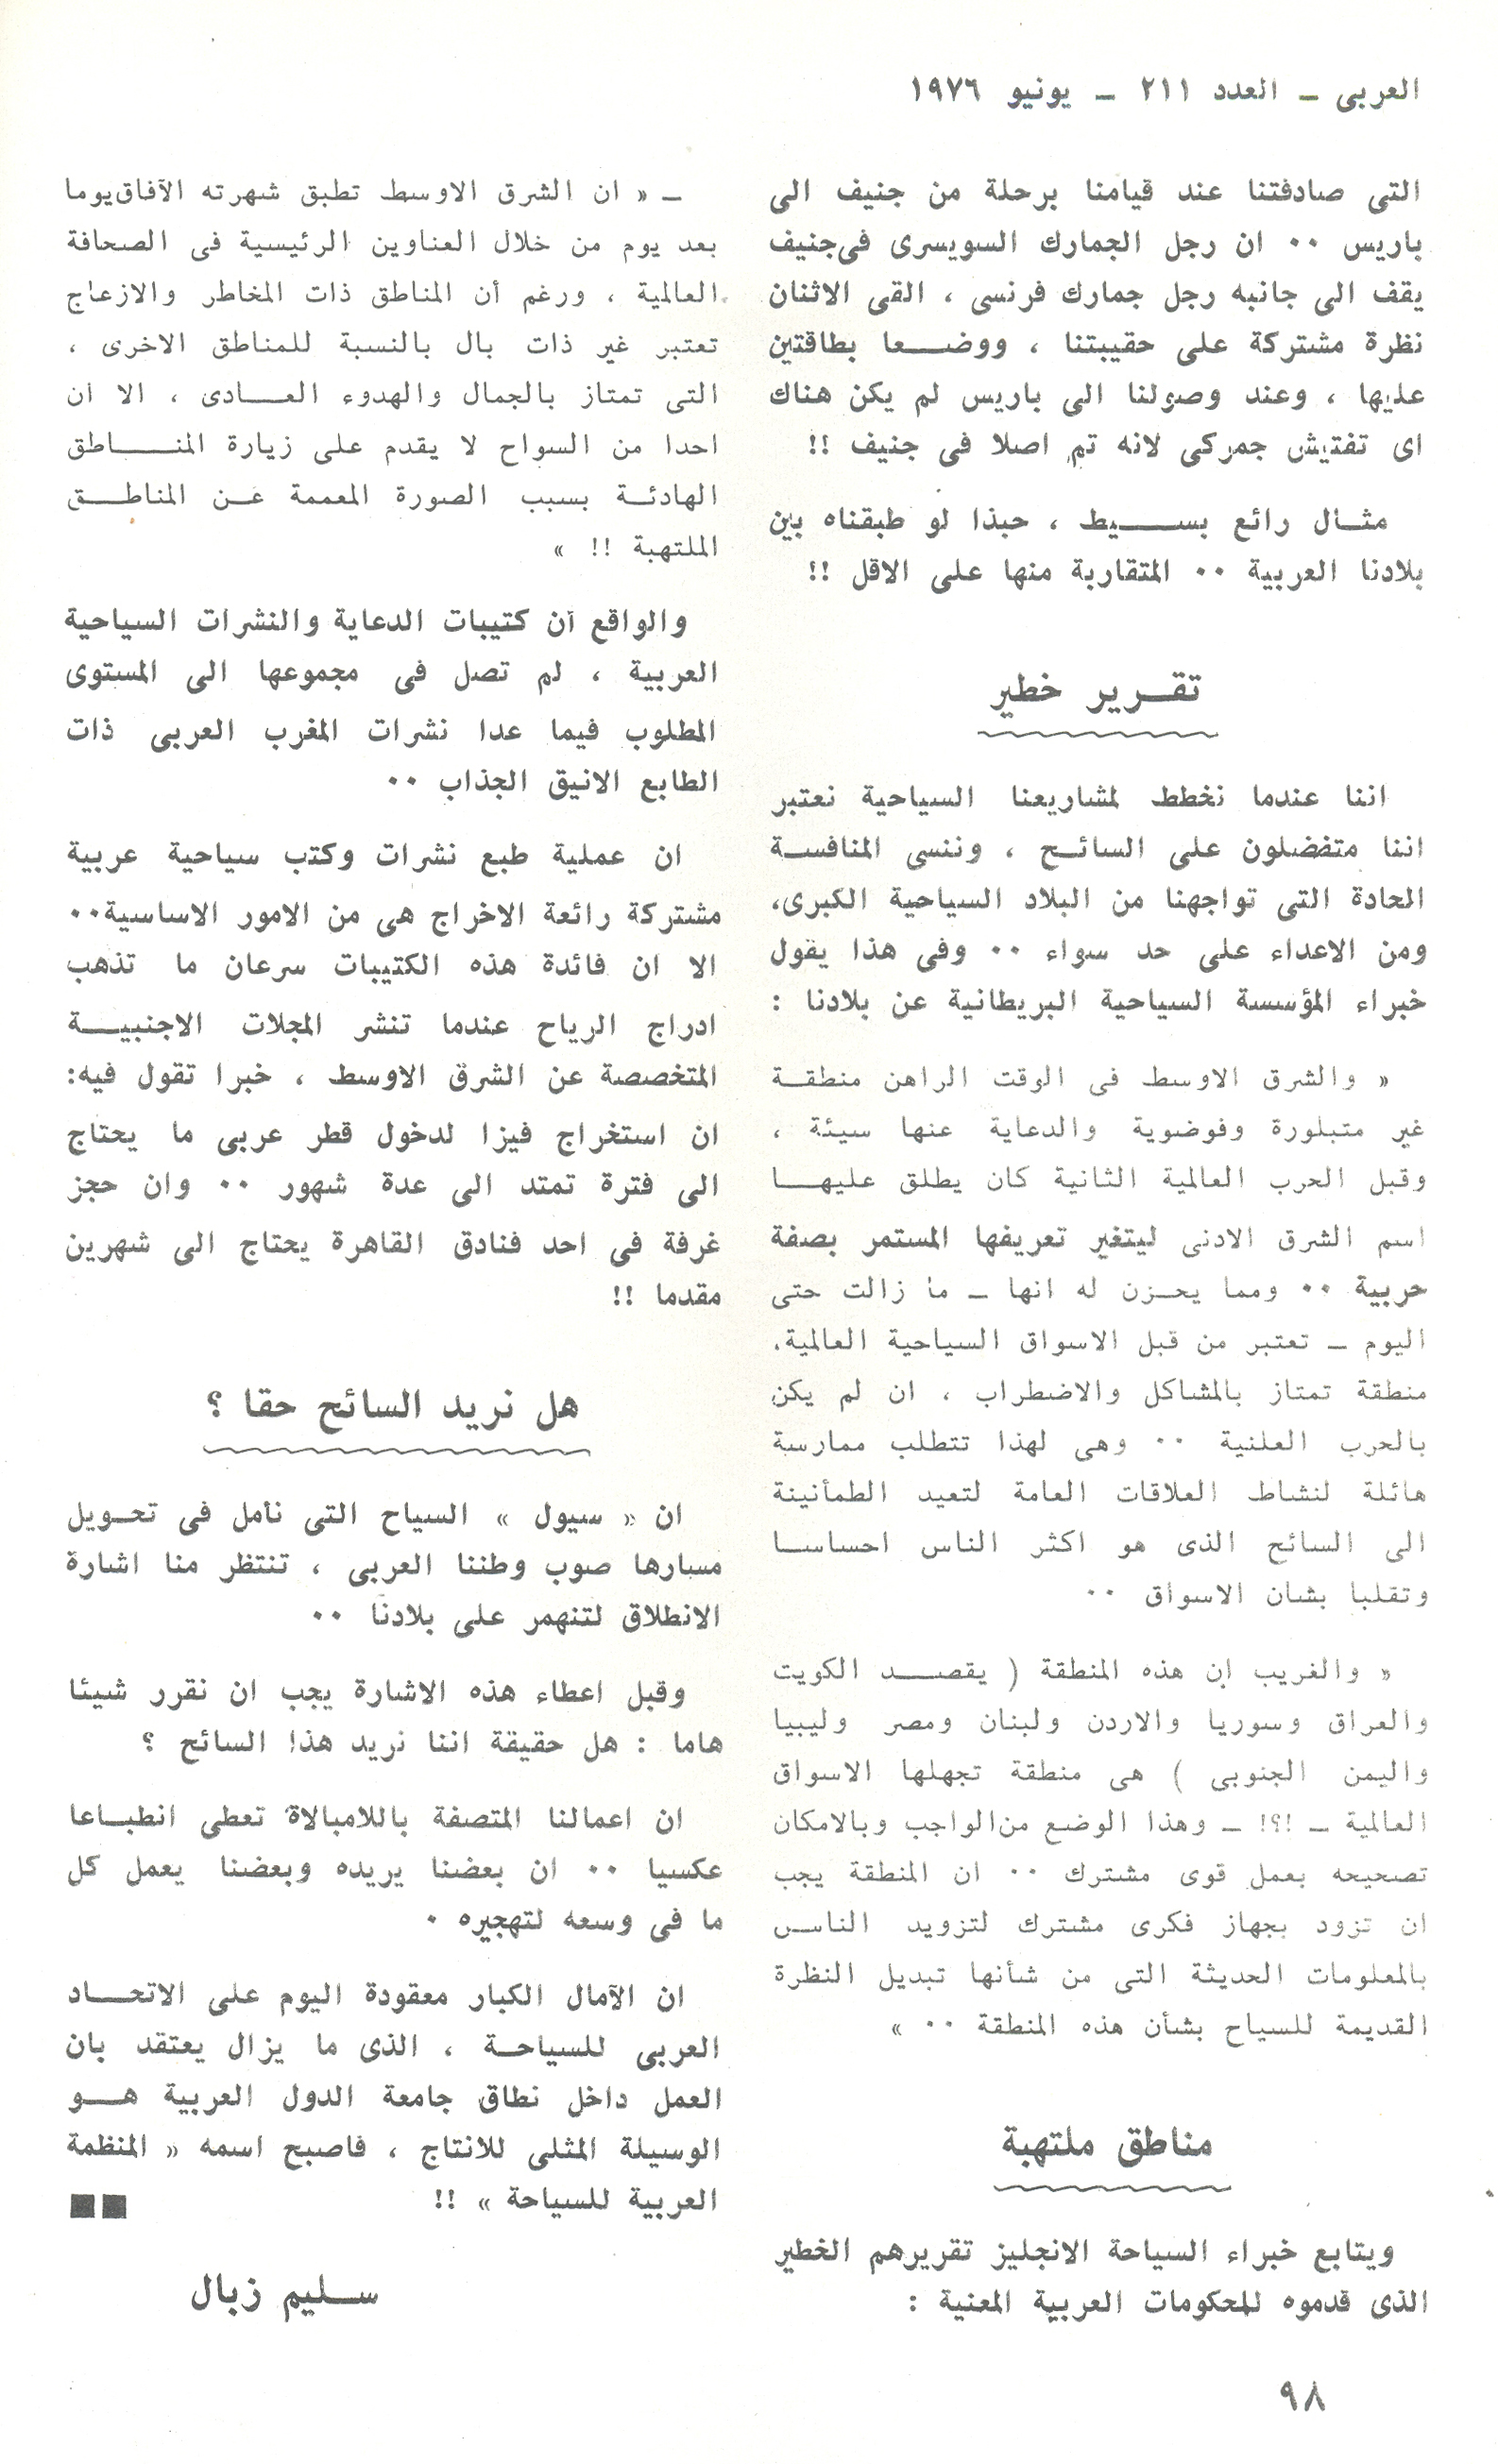 العربى – العدد ٢١١ – يونيو ١٩٧٦
التى صادفتنا عند قيامنا برحلة من جنيف الى
باريس ٠٠ ان رجل الجمارك السويسرى فى جنيف
يقف الى جانبه رجل جمارك فرنسى ، القى الاثنان
نظرة مشتركة على حقيبتنا ، ووضعا بطاقتين
عليها ، وعند وصولنا الى باريس لم يكن هناك
اى تفتيش جمركى لانه تم اصلا فى جنيف !!
مثال رائع بسيط ، حبذا لو طبقناه بين
بلادنا العربية ٠٠ المتقاربة منها على الاقل !!
تقرير خطير
اننا عندما نخطط لمشاريعنا السياحية نعتبر
اننا متفضلون على السائح ، وننسى المنافسة
الحادة التى تواجهنا من البلاد السياحية الكبرى،
ومن الاعداء على حد سواء ٠٠ وفى هذا يقول
خبراء المؤسسة السياحية البريطانية عن بلادنا :
« والشرق الاوسط فى الوقت الراهن منطقة
غير متبلورة وفوضوية والدعاية عنها سيئة ،
وقبل الحرب العالمية الثانية كان يطلق عليها
اسم الشرق الادنى ليتغير تعريفها المستمر بصفة
حربية ٠٠ ومما يحزن له انها – ما زالت حتى
اليوم – تعتبر من قبل الاسواق السياحية العالمية،
منطقة تمتاز بالمشاكل والاضطراب ، ان لم يكن
بالحرب العلنية ٠٠ وهى لهذا تتطلب ممارسة
هائلة لنشاط العلاقات العامة لتعيد الطمأنينة
الى السائح الذى هو اكثر الناس احساسا
وتقلبا بشان الاسواق ٠٠
« والغريب إن هذه المنطقة ( يقصد الكويت
والعراق وسوريا والاردن ولبنان ومصر وليبيا
واليمن الجنوبى ) هى منطقة تجهلها الاسواق
العالمية – !؟! – وهذا الوضع من الواجب وبالامكان
تصحيحه بعمل قوى مشترك ٠٠ ان المنطقة يجب
ان تزود بجهاز فكرى مشترك لتزويد الناس
بالمعلومات الحديثة التى من شأنها تبديل النظرة
القديمة للسياح بشأن هذه المنطقة ٠٠ »
مناطق ملتهبة
ويتابع خبراء السياحة الانجليز تقريرهم الخطير
الذى قدموه للحكومات العربية المعنية :
– « ان الشرق الاوسط تطبق شهرته الآفاق يوما
بعد يوم من خلال العناوين الرئيسية فى الصحافة
العالمية ، ورغم أن المناطق ذات المخاطر والازعاج
تعتبر غير ذات بال بالنسبة للمناطق الاخرى ،
التى تمتاز بالجمال والهدوء العادى ، الا ان
احدا من السواح لا يقدم على زيارة المناطق
الهادئة بسبب الصورة المعممة عن المناطق
الملتهبة !! »
والواقع أن كتيبات الدعاية والنشرات السياحية
العربية ، لم تصل فى مجموعها الى المستوى
المطلوب فيما عدا نشرات المغرب العربى ذات
الطابع الانيق الجذاب ٠٠
ان عملية طبع نشرات وكتب سياحية عربية
مشتركة رائعة الاخراج هى من الامور الاساسية٠٠
الا ان فائدة هذه الكتيبات سرعان ما تذهب
ادراج الرياح عندما تنشر المجلات الاجنبية
المتخصصة عن الشرق الاوسط ، خبرا تقول فيه:
ان استخراج فيزا لدخول قطر عربى ما يحتاج
الى فترة تمتد الى عدة شهور ٠٠ وان حجز
غرفة فى احد فنادق القاهرة يحتاج الى شهرين
مقدما !!
هل نريد السائح حقا ؟
ان « سيول » السياح التى نأمل فى تحويل
مسارها صوب وطننا العربى ، تنتظر منا اشارة
الانطلاق لتنهمر على بلادنا ٠٠
وقبل اعطاء هذه الاشارة يجب ان نقرر شيئا
هاما : هل حقيقة اننا نريد هذا السائح ؟
ان اعمالنا المتصفة باللامبالاة تعطى انطباعا
عكسيا ٠٠ ان بعضنا يريده وبعضنا يعمل كل
ما فى وسعه لتهجيره ٠
ان الآمال الكبار معقودة اليوم على الاتحاد
العربى للسياحة ، الذى ما يزال يعتقد بان
العمل داخل نطاق جامعة الدول العربية هو
الوسيلة المثلى للانتاج ، فاصبح اسمه « المنظمة
العربية للسياحة » !!
سليم زبال
٩٨